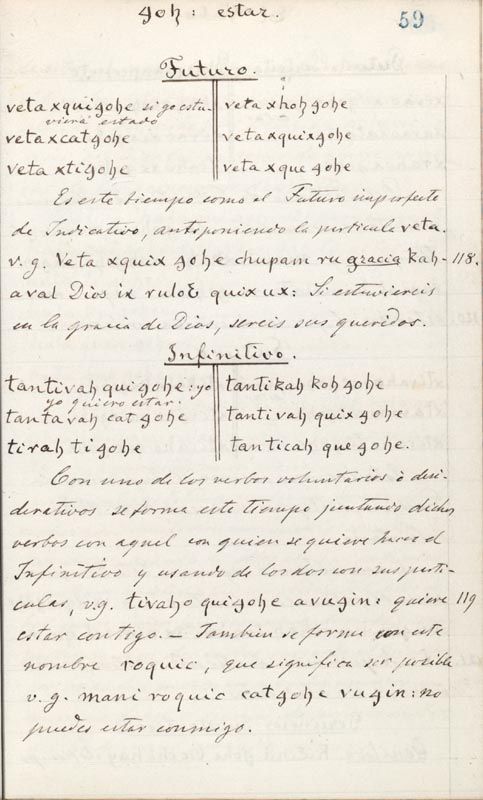 goh : estar.
59
Futuro.
veta xquigohe si yo estu- | veta xhoh gohe
viera estado
veta xcatgohe | veta xquixgohe
veta xtigohe | veta xque gohe
Es este tiempo como el Futuro imperfecto
de Indicativo, anteponiendo la particula veta.
v. g. Veta xquix gohe chupam ru gracia kah- 118.
aval Dios ix ruloε quixux: Si estuviereis
en la gracia de Dios, sereis sus queridos.
Infinitivo.
tantivah quigohe: yo | tantikah koh gohe
yo quiero estar.
tantavah cat gohe | tantivah quix gohe
tirah tigohe | tanticah que gohe.
Con uno de los verbos voluntarios ò desi-
derativos se forma este tiempo juntando dichos
verbos con aquel con quien se quiere hacer el
Infinitivo y usando de los dos con sus parti-
culas, v.g. tivaho quigohe avugin: quiero 119
estar contigo. – Tambien se forma con este
nombre roquic, que significa ser posible
v. g. mani roquic catgohe vugin: no
puedes estar conmigo.